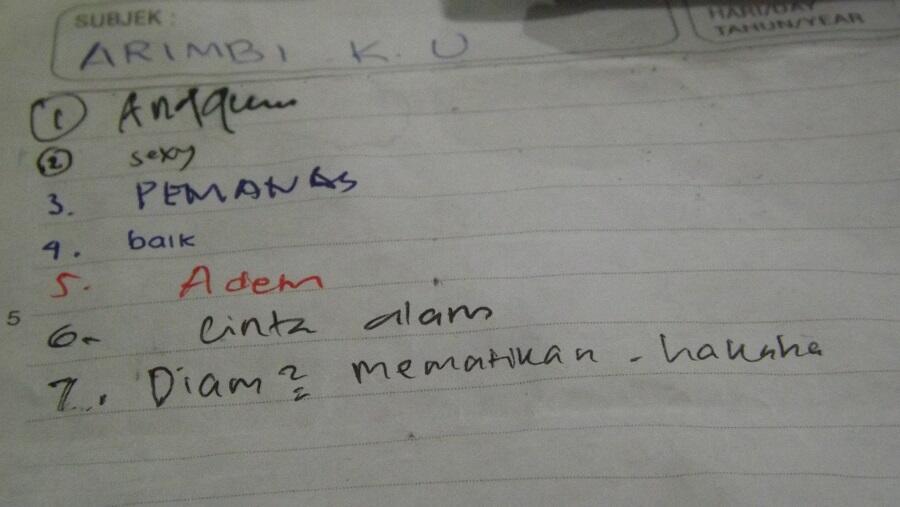 SUBJEK :
HARI/DAY
TAHUN/YEAR
ARIMBI K. U
1 Anggun
2 sexy
3. PEMANAS
4. baik
5. Adem
5
6. cinta alam
7. Diam2 mematikan - hahaha